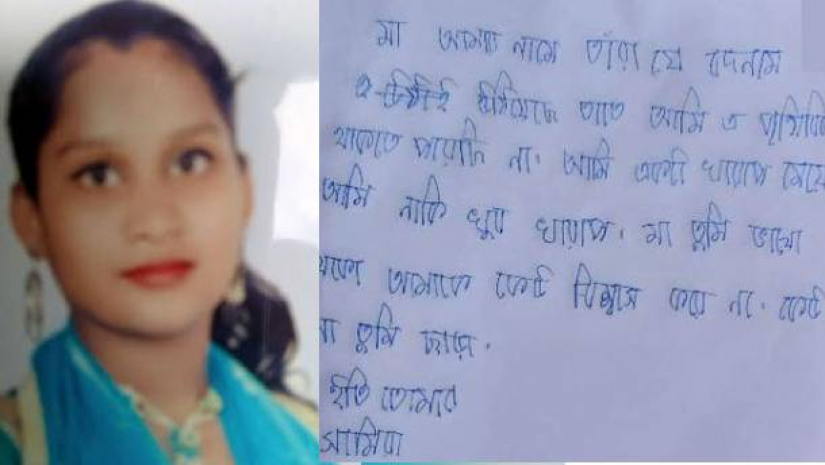 মা আমার নামে তাঁরা যে বদনাম
আমি এ পৃথিবিতে
থাকতে পারছি না। আমি একটা খারাপ মেয়ে
আমি নাকি খুব খারাপ। মা তুমি ভালো
থেকো আমাকে কেউ বিশ্বাস করে না। কেউ
না তুমি ছাড়া।
ইতি তোমার
সামিরা